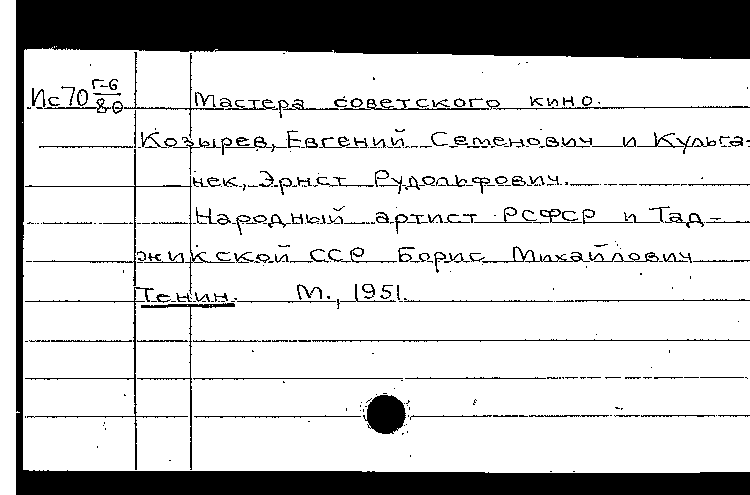 Ис70 Г-6/80 Мастера советского кино.
Козырев, Евгений Семенович и Кульга-
нек, Эрнст Рудольфович.
Народный артист РСФСР и Тад-
жикской ССР Борис Михайлович
Тенин. М., 1951.